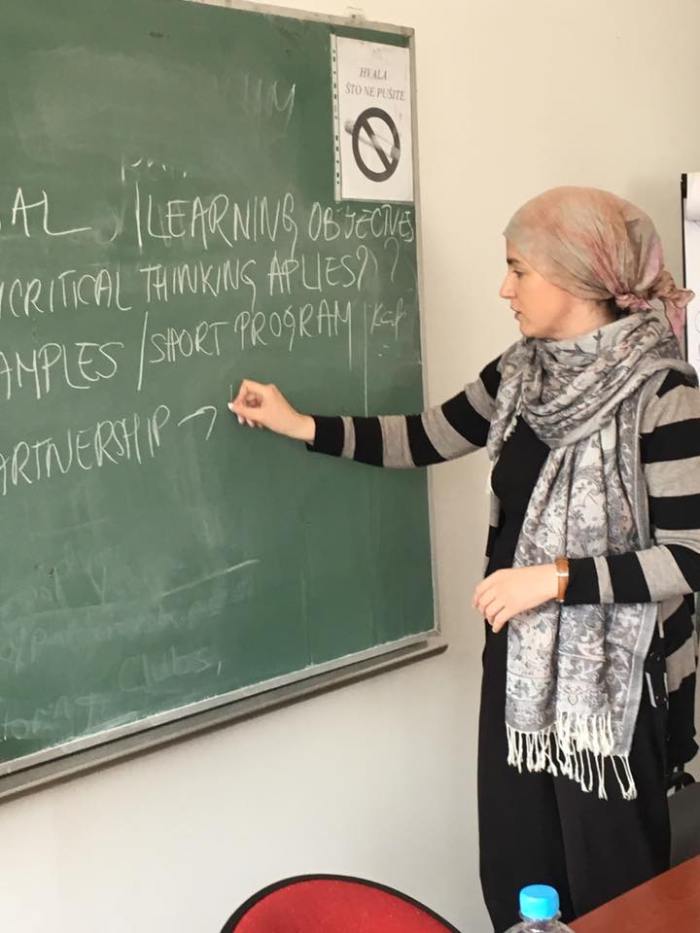 HVALA
ŠTO NE PUŠITE
AL / LEARNING OBJECTIVES
CRITICAL THINKING APLIES? ?
AMPLES / SHORT PROGRAM |
ARTNERSHIP →
Clubs,